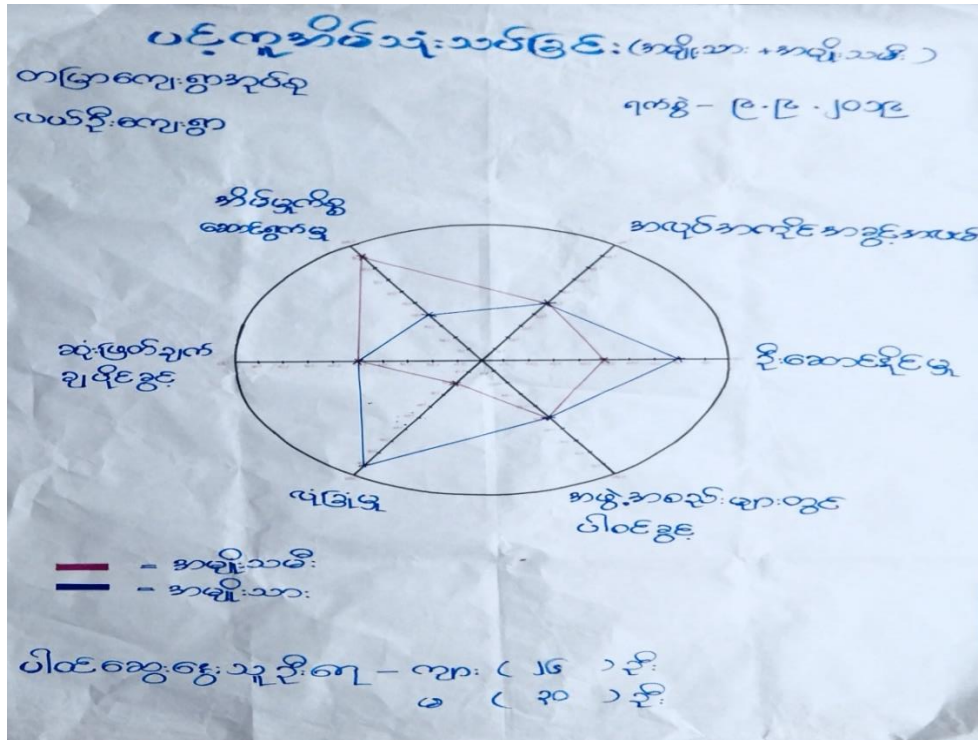 ပင့်ကူအိမ်သုံးသပ်ခြင်း (အမျိုးသား + အမျိုးသမီး)
တမြာကျေးရွာအုပ်စု
ရက်စွဲ - ၉.၉.၂၀၁၉
လယ်ဦးကျေးရွာ
အိမ်မှုကိစ္စ
ဆောင်ရွက်မှု
အလုပ်အကိုင်အခွင့်အလမ်း
ဆုံးဖြတ်ချက်
ချပိုင်ခွင့်
ဦးဆောင်နိုင်မှု
လုံခြုံမှု
အဖွဲ့အစည်းများတွင်
ပါဝင်ခွင့်
- အမျိုးသမီး
- အမျိုးသား
ပါဝင်ဆွေးနွေးသူဦးရေ - ကျား ( ၂၆ ) ဦး
မ ( ၃၀ ) ဦး